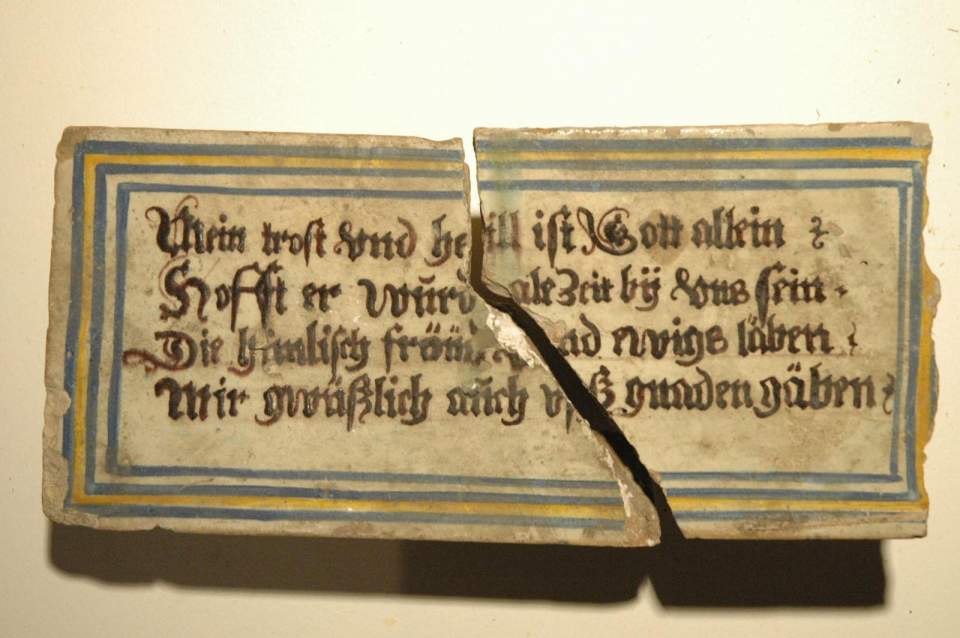 Mein trost vnd heill ist Gott allein
Hofft er würd ale Zeit bÿ vns sein
Die himlisch fröüd vnd ewigs läben
Mir gwüßlich auch vß gnaden gäben